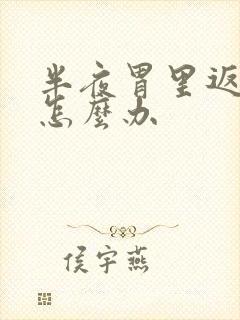 半夜胃里返
怎麼办
侯宇燕